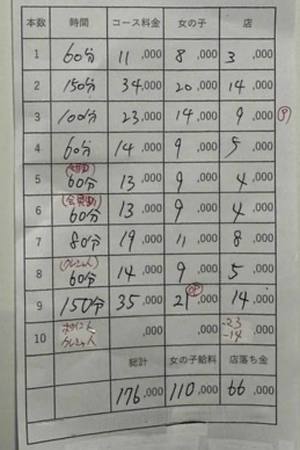 本数 時間 コース料金 女の子 店
1 60分 11,000 8,000 3,000
2 150分 34,000 20,000 14,000
3 100分 23,000 14,000 9,000
4 60分 14,000 9,000 5,000
5 60分 13,000 9,000 4,000
6 60分 13,000 9,000 4,000
7 80分 19,000 11,000 8,000
8 60分 14,000 9,000 5,000
9 150分 35,000 21,000 14,000
10 ,000 ,000 -23 ,000
-14
総計 女の子給料 店落ち金
176,000 110,000 66,000